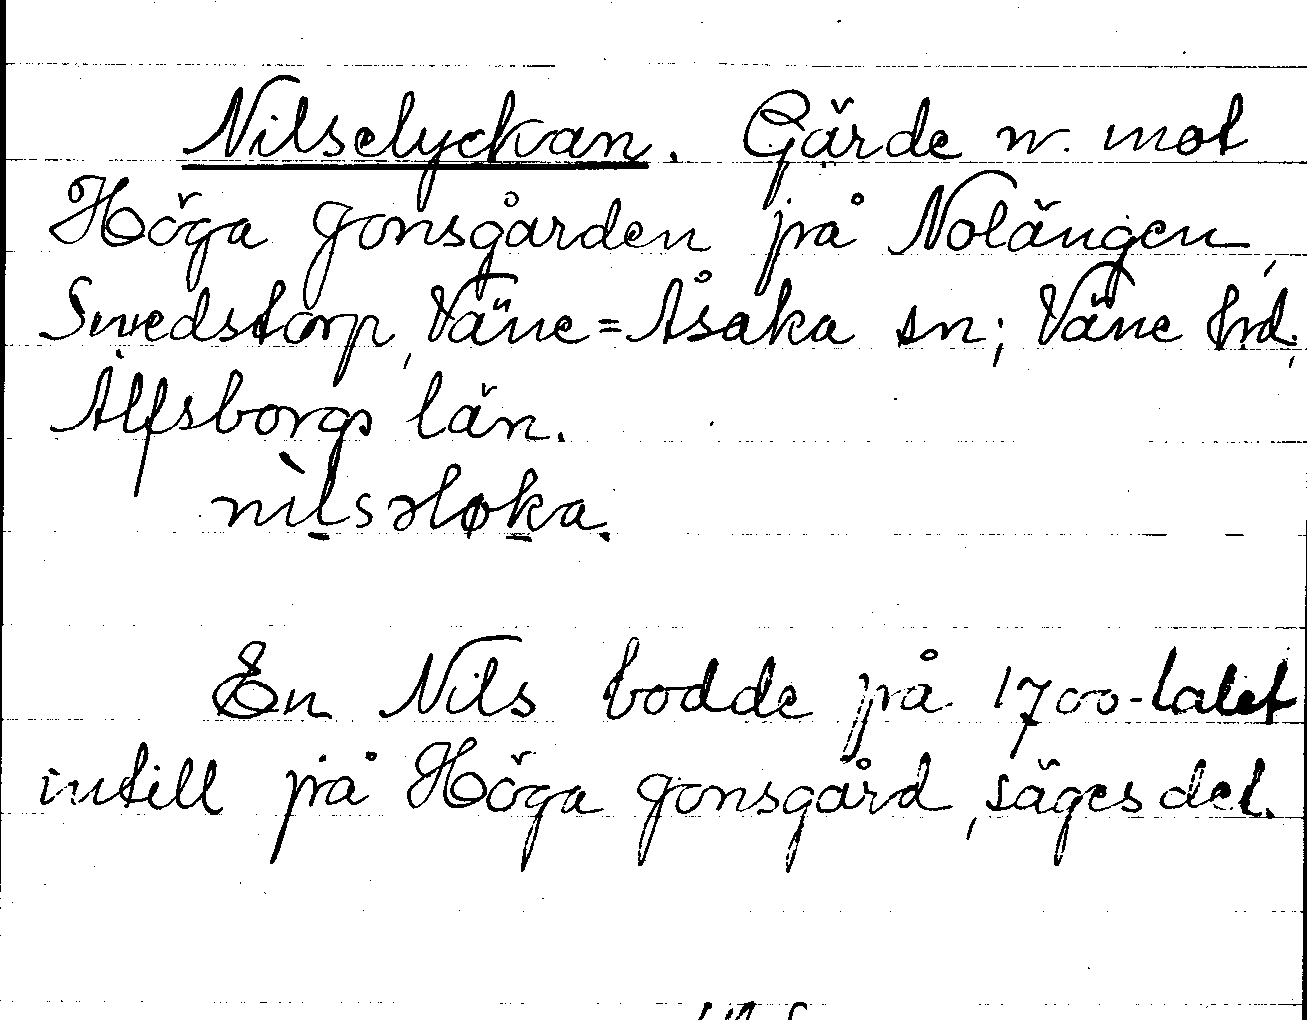 Nilselyckan. Gärde n. mot
Höga Jonsgården på Nolängen,
Smedstorp, Väne=Åsaka sn; Väne hd,
Älfsborgs län.
En Nils bodde på 1700-talet
intill på Höga Jonsgård, säges det.